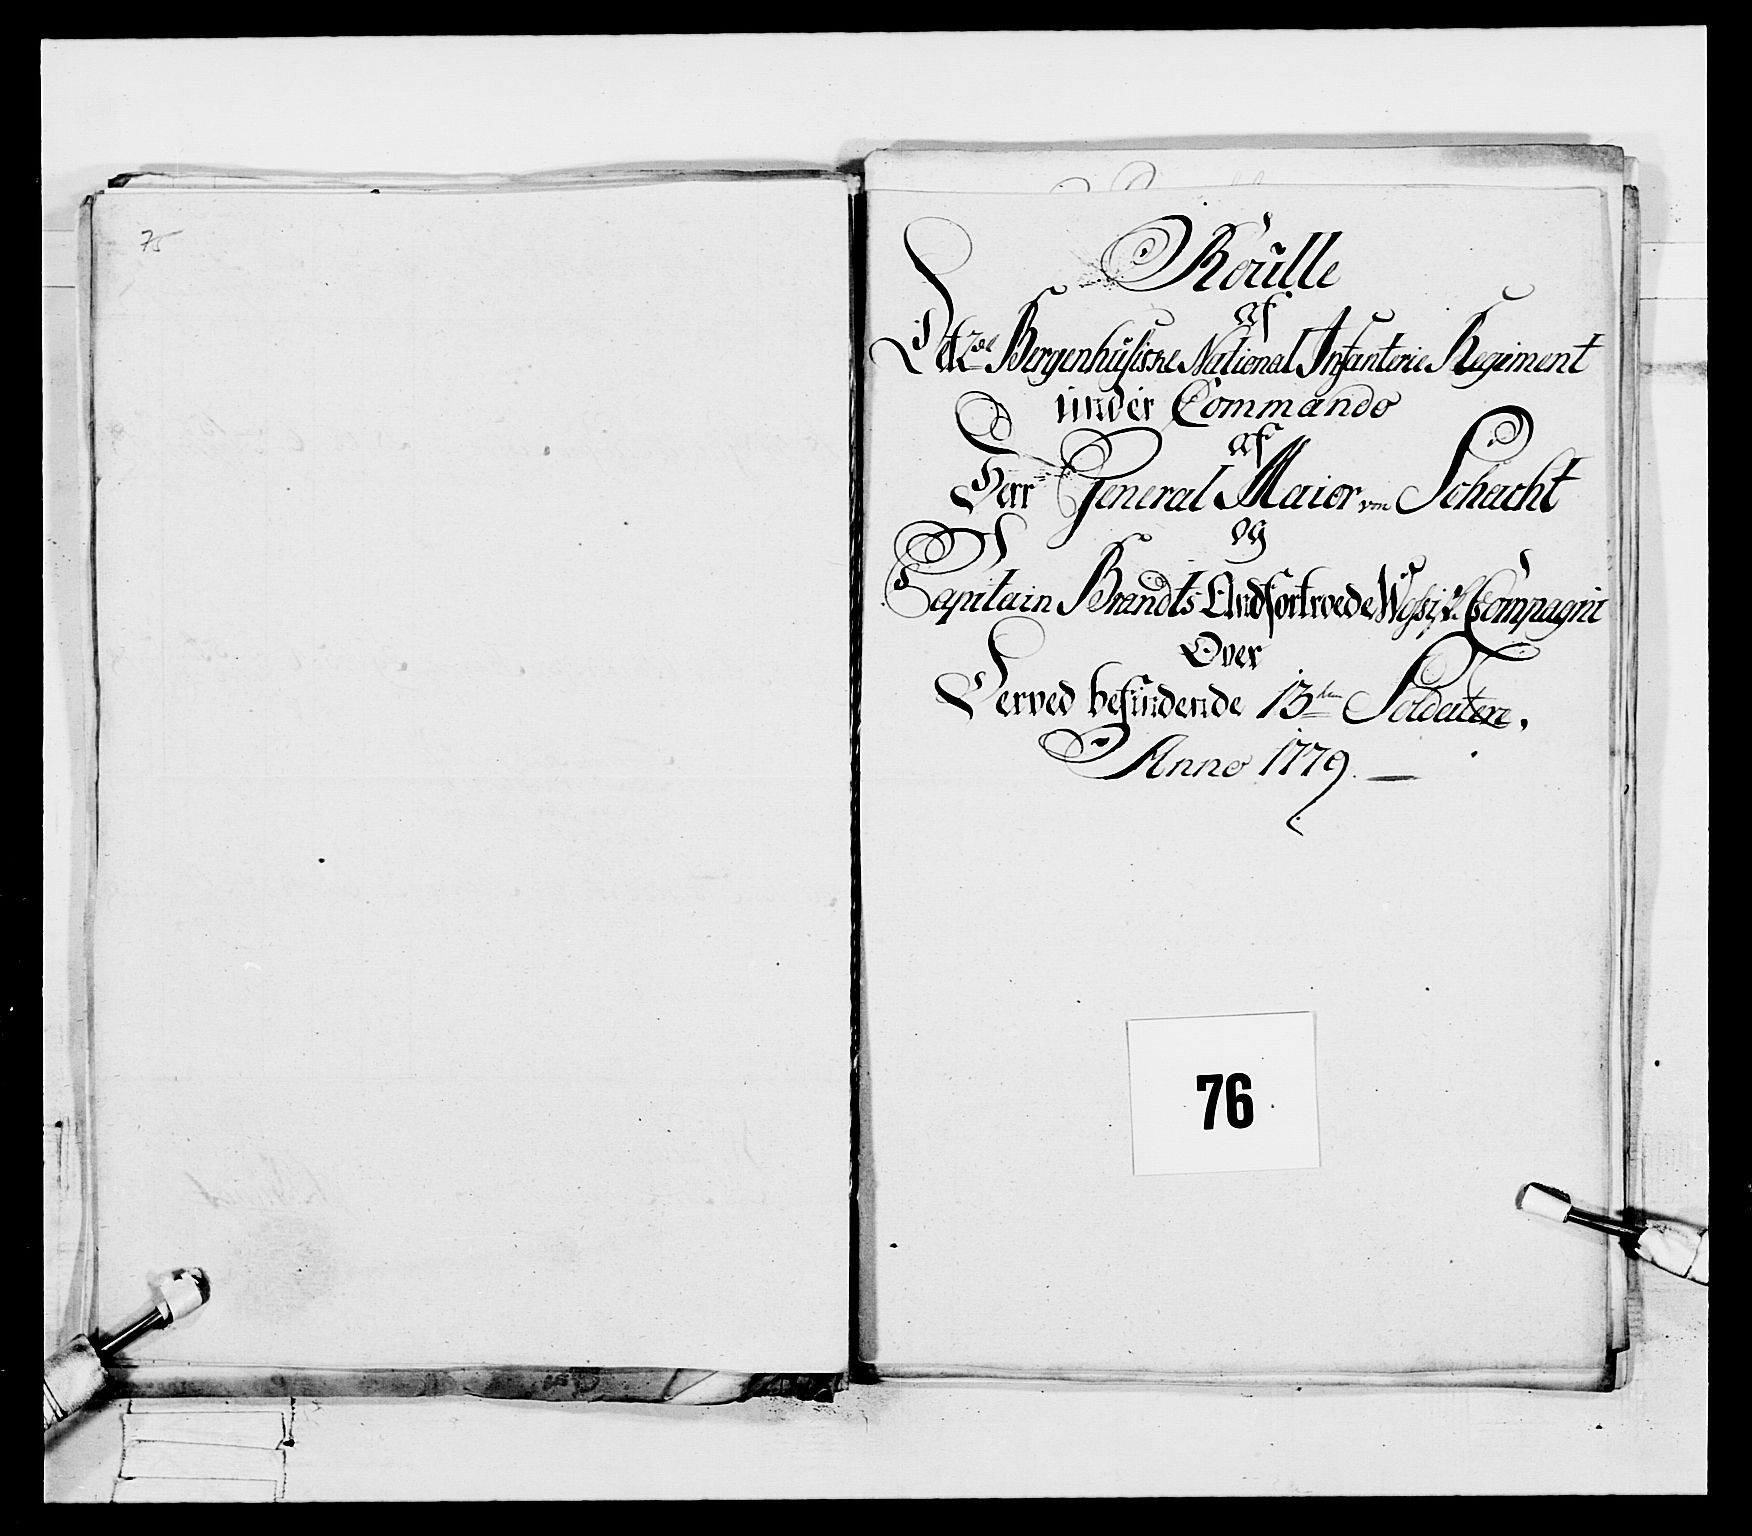 75
Roulle
af
Det 2det Bergenhusiske National Infanterie Regiment
under Commando
af
Herr General Maior von Schacht
og
Capitain Brandts Andfortroede Compagni
Over
Derved befindende 13ten Soldatere.
Anno 1779. —
76